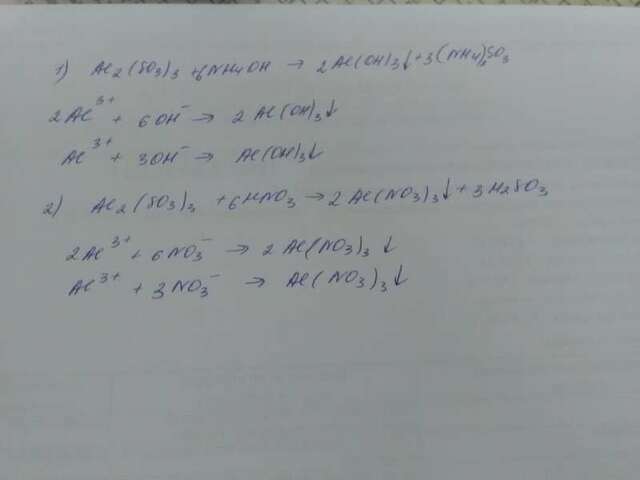 1) Al2(SO3)3 + 6NH4OH → 2Al(OH)3↓ + 3(NH4)2SO3
2Al³⁺ + 6OH⁻ → 2Al(OH)3↓
Al³⁺ + 3OH⁻ → Al(OH)3↓
2) Al2(SO3)3 + 6HNO3 → 2Al(NO3)3↓ + 3H2SO3
2Al³⁺ + 6NO3⁻ → 2Al(NO3)3↓
Al³⁺ + 3NO3⁻ → Al(NO3)3↓